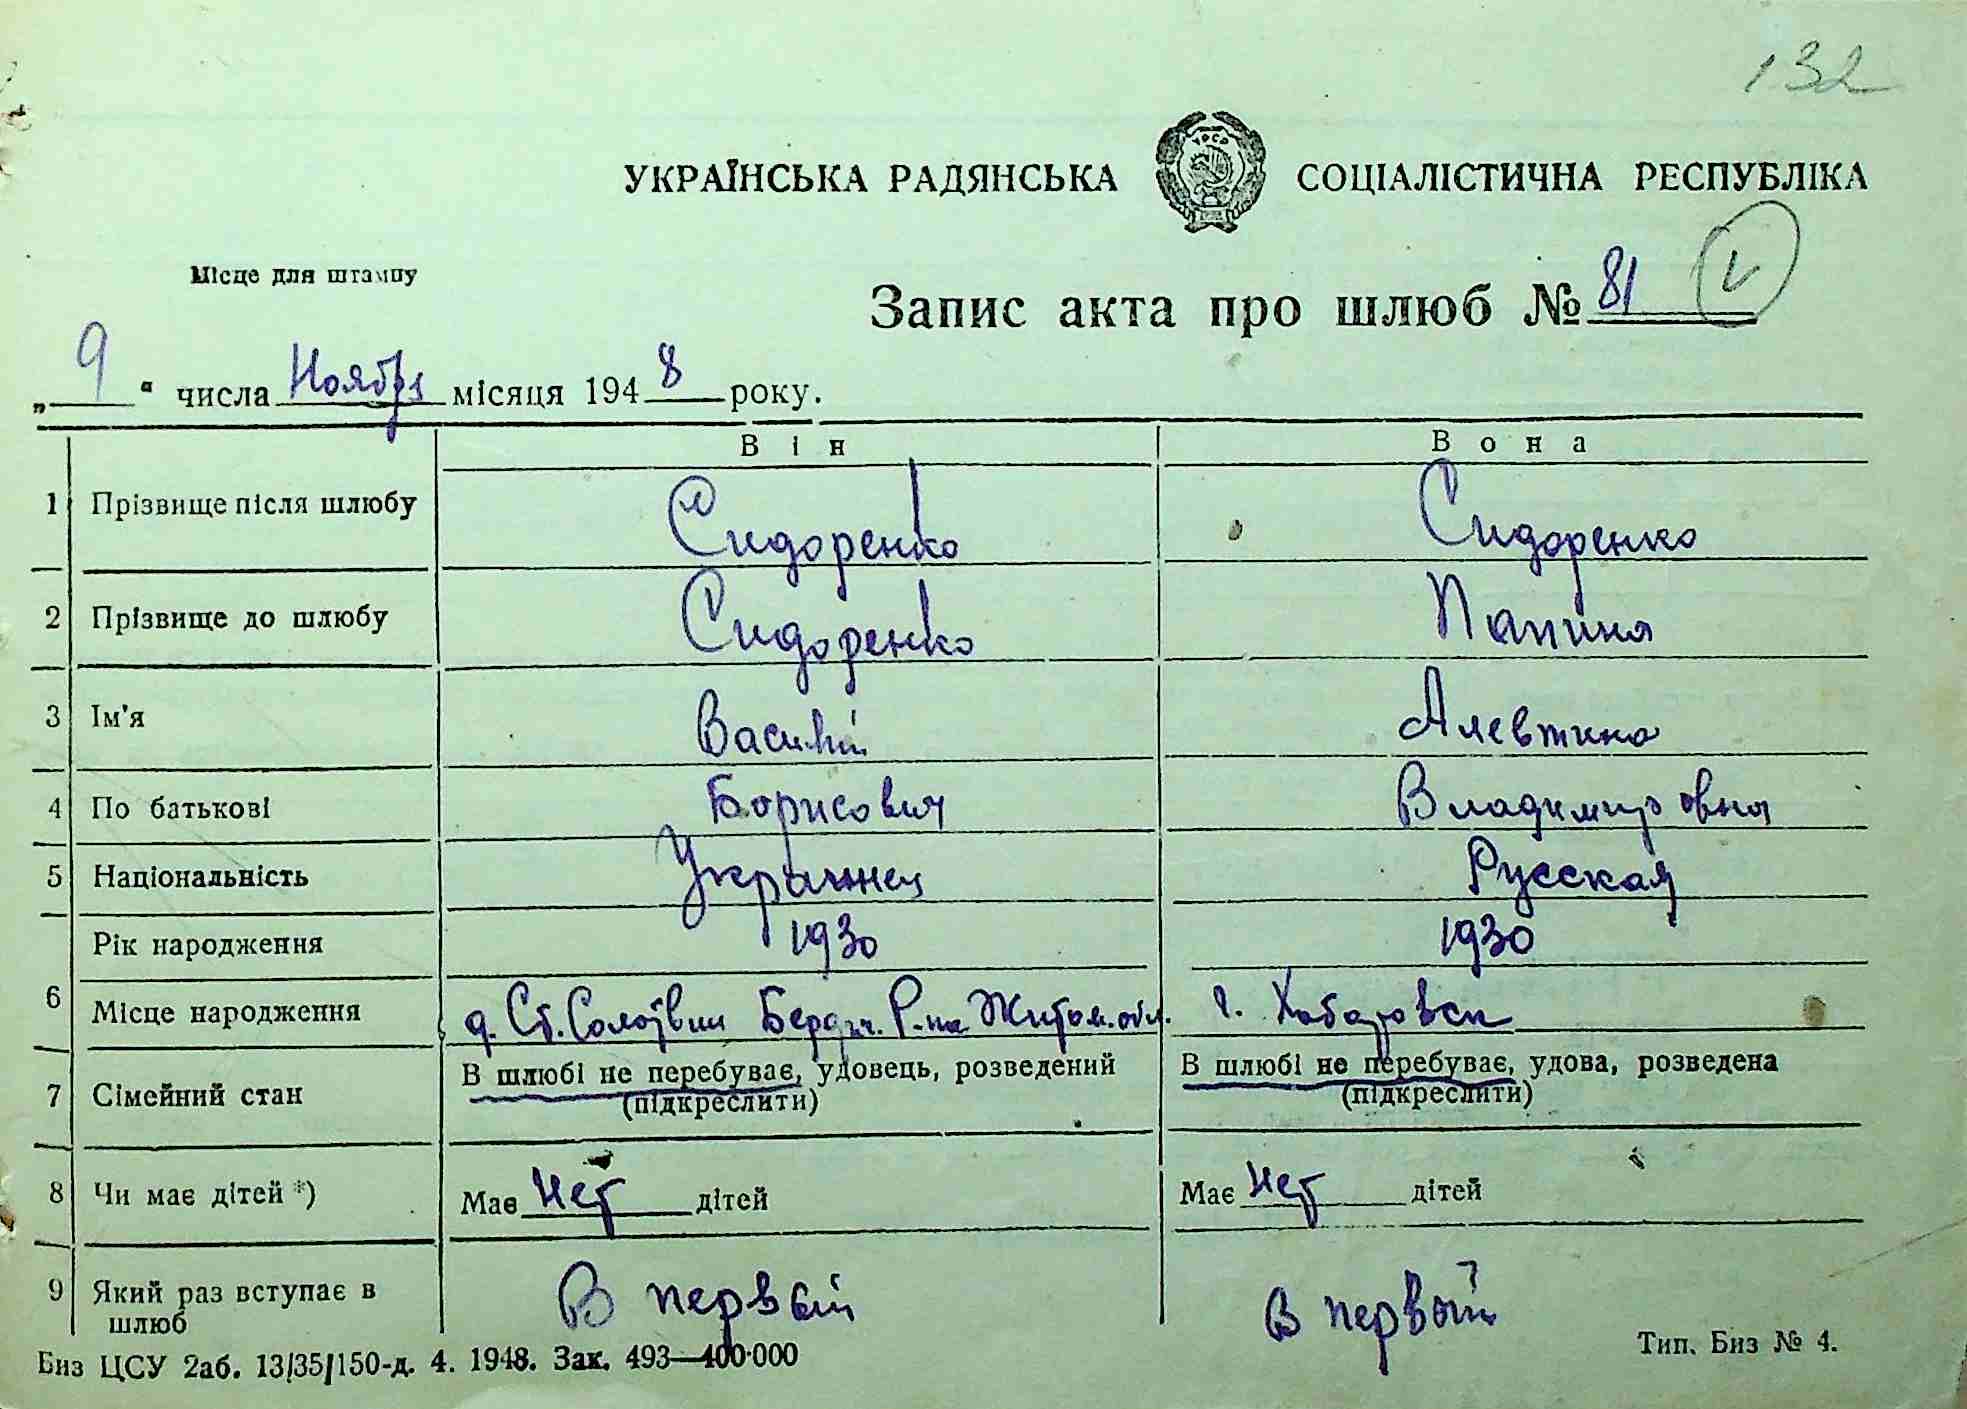 132
УКРАЇНСЬКА РАДЯНСЬКА СОЦІАЛІСТИЧНА РЕСПУБЛІКА
Місце для штампу
Запис акта про шлюб № 81
„ 9 “ числа Ноября місяця 1948 року.
Він Вона
1 Прізвище після шлюбу Сидоренко Сидоренко
2 Прізвище до шлюбу Сидоренко Папина
3 Ім'я Василий Алевтина
4 По батькові Борисович Владимировна
5 Національність Украинец Русская
Рік народження 1930 1930
6 Місце народження д. Ст. Солотвин Бердич. Р-на Житом. обл. г. Хабаровск
7 Сімейний стан В шлюбі не перебуває, удовець, розведений В шлюбі не перебуває, удова, розведена
(підкреслити) (підкреслити)
8 Чи має дітей *) Має нет дітей Має нет дітей
9 Який раз вступає в шлюб В первый В первый
Биз ЦСУ 2аб. 13/35/150-д. 4. 1948. Зак. 493—400·000 Тип. Биз № 4.